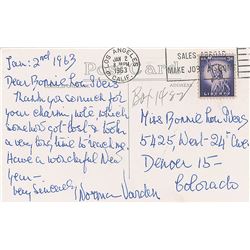 Jan: 2nd 1963
Dear Bonnie Lou
Thank you so much for
your charming note which
somehow got lost & took
a very long time to reach me.
Have a wonderful New
Year —
Very Sincerely,
Norma Varden
Post Card
ADDRESS
LOS ANGELES
CALIF.
JAN 2
PM
1963
MAKE JOBS
Box 1482
Miss Bonnie Lou
5425 West - 24th Ave
Denver 15 —
Colorado